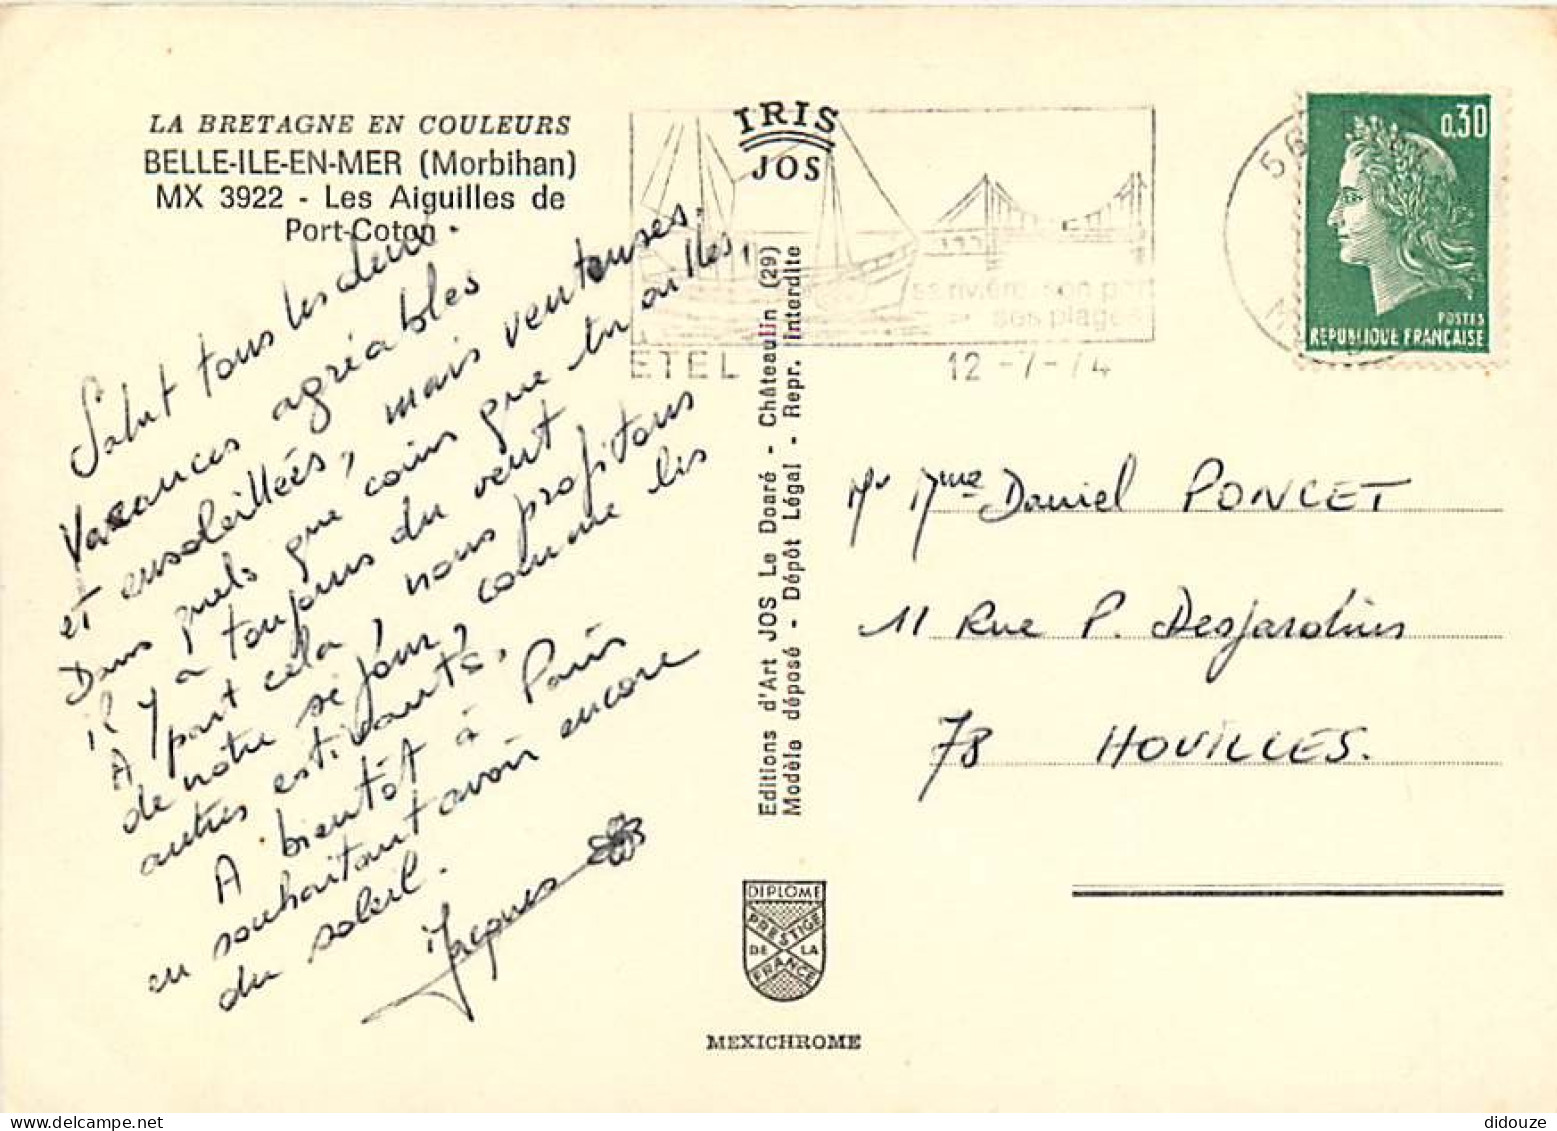 LA BRETAGNE EN COULEURS
BELLE-ILE-EN-MER (Morbihan)
MX 3922 - Les Aiguilles de
Port-Coton
IRIS
JOS
sa rivière, son port
ses plages
ETEL
12 -7-74
0,30
POSTES
REPUBLIQUE FRANÇAISE
Salut tous les deux.
Vacances agréables
et ensoleillées, mais venteuses.
Dans quels que coins que tu ailles,
il y a toujours du vent
A part cela, nous profitons
de notre séjour, comme les
autres estivants,
A bientôt à Paris
en souhaitant avoir encore
du soleil.
Jacques
Editions d'Art JOS Le Doaré - Châteaulin (29)
Modèle déposé - Dépôt Légal - Repr. Interdite
Mr Mme Daniel PONCET
11 Rue P. Desjardins
78 HOUILLES.
DIPLOME
PRESTIGE
DE LA
FRANCE
MEXICHROME
didouze